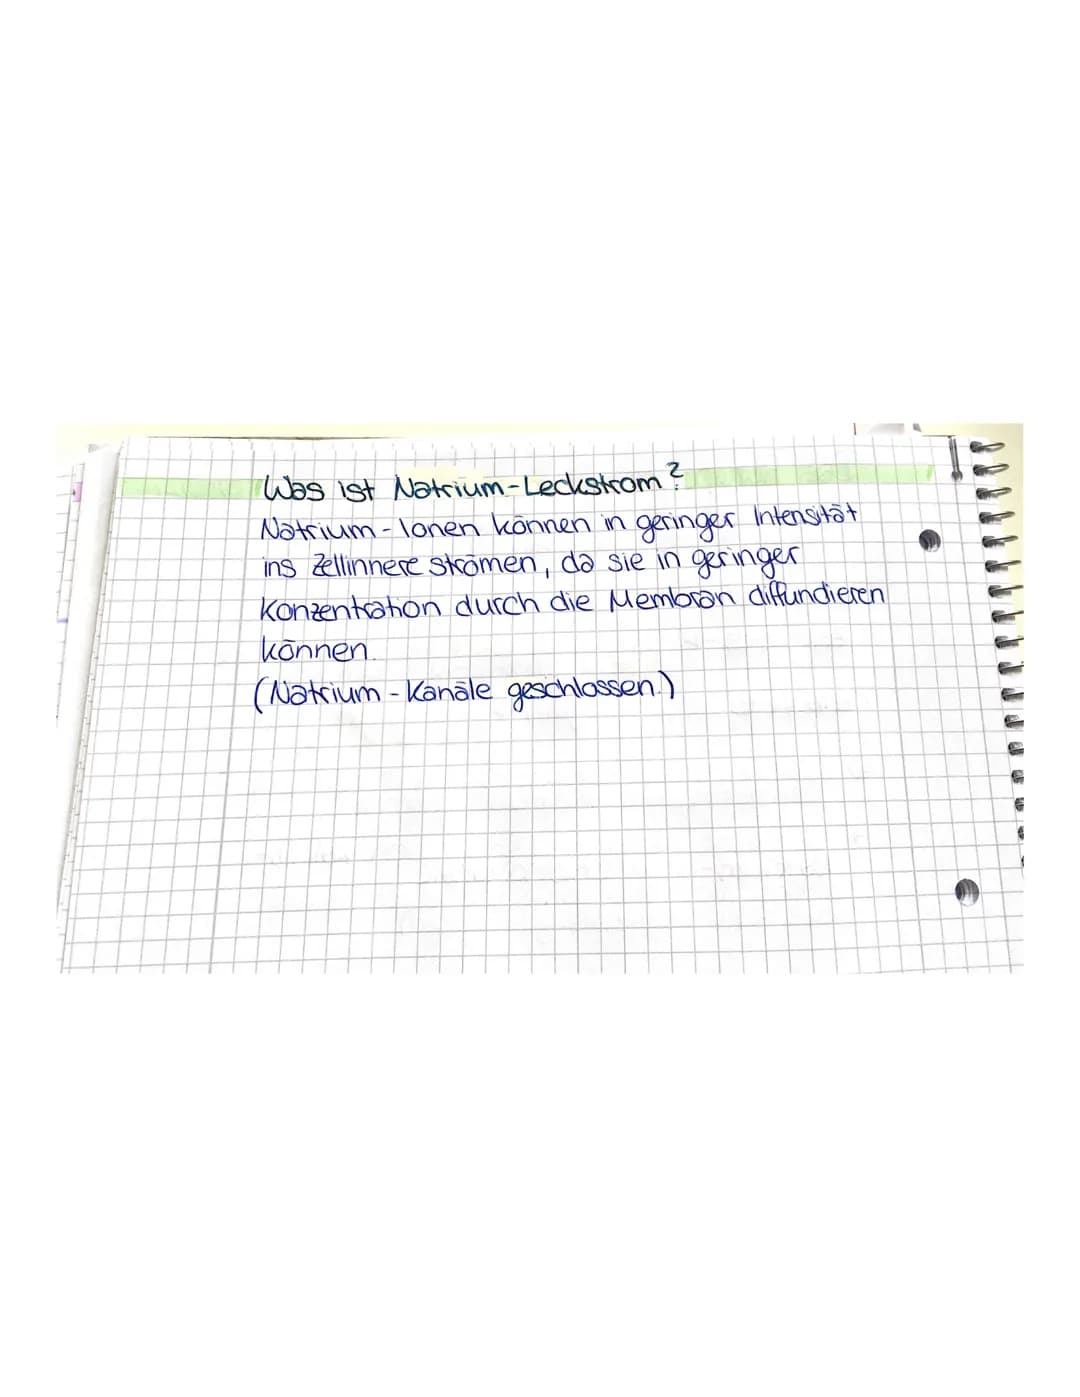 Was ist Natrium-Leckstrom?
Natrium-Ionen können in geringer Intensität
ins Zellinnere strömen, da sie in geringer
Konzentration durch die Membran diffundieren
können.
(Natrium-Kanäle geschlossen.)